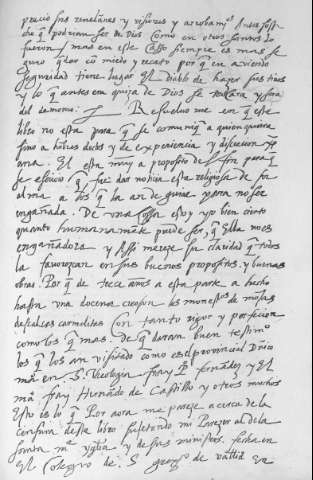 precio sus revelaçiones y visiones y arrobami.os Aunq̃ posi
ble q̃ podrian ser de Dios Como en otros sanctos lo
fueron / mas en este Caso siempre es mas se
guro q̄dar cō miedo y recato por q̄ en aviendo
seguridad tiene lugar El diablo de hazer sus tiros
y lo q̃ antes era quiza de Dios se trocara y sera
del demonio: Resueluome en q̃ este
libro no esta para q̃ se comuniq̃ a quien quiera
sino a hōbres doctos y de experiencia y discreciō xp̄i
ana. El esta muy a proposito del fin para q̃
se escriuio. q̃ fue dar noticia esta religiosa de su
alma a los q̃ la an de guiar para no ser
engañada. De una cossa estoy yo bien cierto
quanto humanamēte puede ser, q̃ Ella no es
engañadora y Assi mereze su claridad q̃ todos
la fauorezcan en sus buenos propositos y buenas
obras. Por q̃ de treze años a esta parte a hecho
hasta una docena creo son los monest.os de mōjas
descalças carmelitas Con tanto rigor y perfecion
como los q̃ mas. de q̃ daran buen testim.o
los q̃ los an visitado como es el prouincial Dn̄ico
m.o en S. Theologia fray P.o fernādez y El
m.o fray Hernādo de Castillo y otros muchos
Esto es lo q̃ Por aora me pareze acerca de la
censura deste libro sujetando mi Parezer al de la
santa m.e yglia y de sus ministros. fecha en
El Colegio de .S. greg.o de vallid en